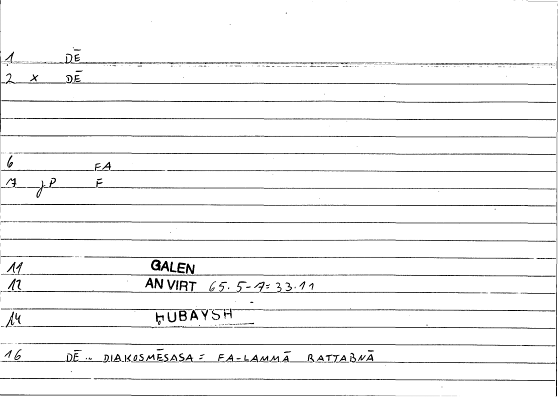 1 DĒ
2 x DĒ
6 FA
7 jP F
11 GALEN
12 AN VIRT 65.5-7=33.11
14 ḤUBAYSH
16 DĒ .. DIAKOSMĒSASA = FA-LAMMĀ RATTABNĀ